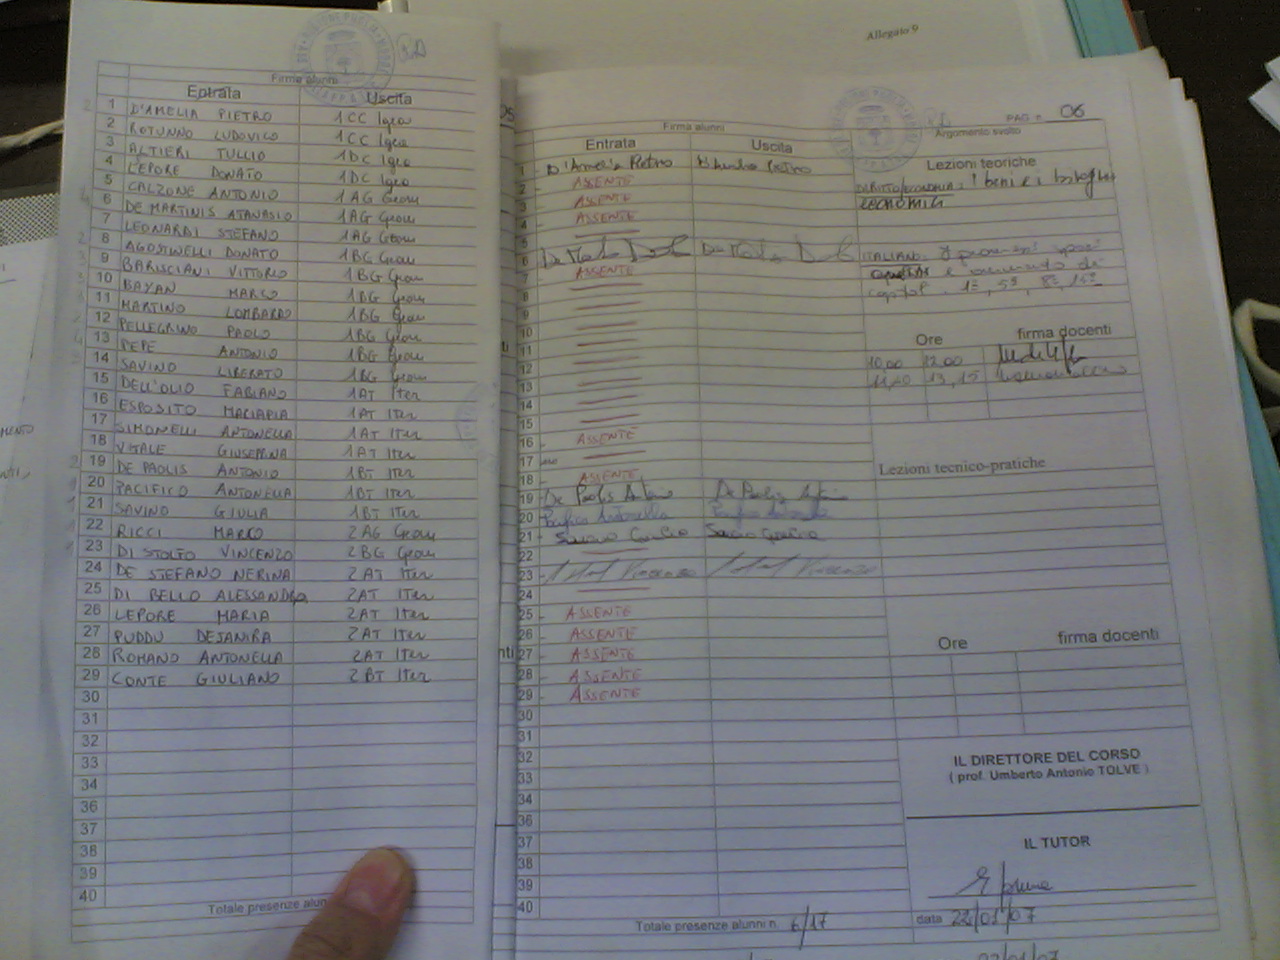 Allegato 9
Firma alunni
Entrata Uscita
1 D'AMELIA PIETRO 1CC Igea
2 ROTUNNO LUDOVICO 1CC Igea
3 ALTIERI TULLIO 1DC Igea
4 LEPORE DONATO 1DC Igea
5 CALZONE ANTONIO 1AG Geom
6 DE MARTINIS ATANASIO 1AG Geom
7 LEONARDI STEFANO 1AG Geom
8 AGOSTINELLI DONATO 1BG Geom
9 BARISCIANI VITTORIO 1BG Geom
10 BAYAN MARCO 1BG Geom
11 MARTINO LOMBARDO 1BG Geom
12 PELLEGRINO PAOLO 1BG Geom
13 PEPE ANTONIO 1BG Geom
14 SAVINO LIBERATO 1BG Geom
15 DELL'OLIO FABIANO 1AT Iter
16 ESPOSITO MACIAPIA 1AT Iter
17 SIMONELLI ANTONELLA 1AT Iter
18 VITALE GIUSEPPINA 1AT Iter
19 DE PAOLIS ANTONIO 1BT Iter
20 PACIFICO ANTONELLA 1BT Iter
21 SAVINO GIULIA 1BT Iter
22 RICCI MARCO 2AG Geom
23 DI STOLFO VINCENZO 2BG Geom
24 DE STEFANO NERINA 2AT Iter
25 DI BELLO ALESSANDRA 2AT Iter
26 LEPORE MARIA 2AT Iter
27 PUDDU DEJANIRA 2AT Iter
28 ROMANO ANTONELLA 2AT Iter
29 CONTE GIULIANO 2BT Iter
30
31
32
33
34
36
37
38
39
40
Totale presenze
PAG n. 06
Firma alunni Argomento svolto
Entrata Uscita
1 D'Amelia Pietro D'Amelia Pietro
2 ASSENTE
3 ASSENTE
4 ASSENTE
5
6
7 ASSENTE
8
9
10
11
12
13
14
15
16 ASSENTE
17
18 ASSENTE
19 De Paolis Antonio De Paolis
20 Pacifico Antonella Pacifico
21 Savino Giulia Savino Giulia
22
23 Vincenzo Vincenzo
24
25 ASSENTE
26 ASSENTE
27 ASSENTE
28 ASSENTE
29 ASSENTE
30
31
32
33
34
36
37
38
39
40
Totale presenze alunni n. 6/17
Lezioni teoriche
DIRITTO/ECONOMIA: I beni e i bisogni
ECONOMICI
ITALIANO: I promessi sposi
Ore firma docenti
10,00 12,00
13,15
Lezioni tecnico-pratiche
Ore firma docenti
IL DIRETTORE DEL CORSO
( prof. Umberto Antonio TOLVE )
IL TUTOR
data 22/01/07